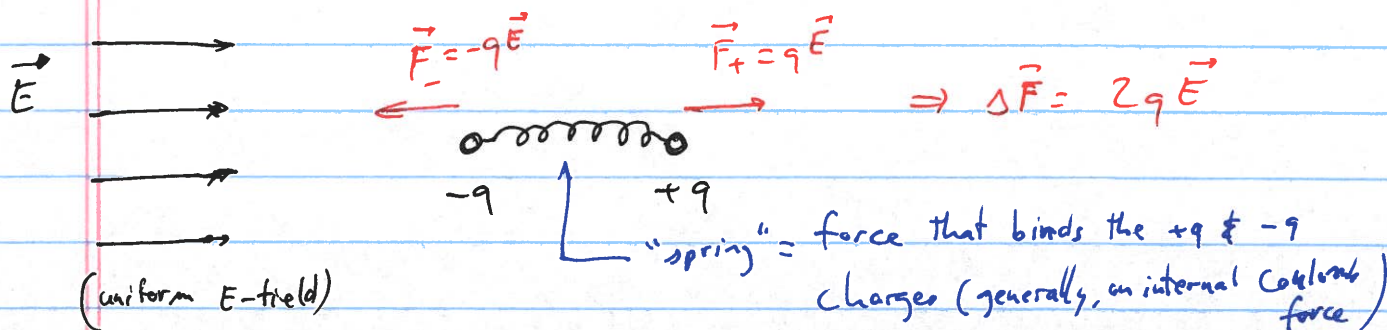 E⃗
F⃗₋ = -qE⃗
F⃗₊ = qE⃗
⇒ ΔF⃗ = 2qE⃗
-q
+q
"spring" = force that binds the +q & -q
charges (generally, an internal Coulomb
force)
(uniform E-field)